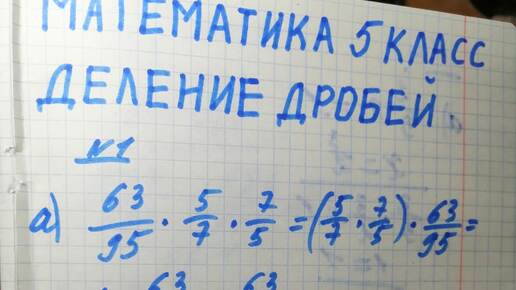 МАТЕМАТИКА 5 КЛАСС
ДЕЛЕНИЕ ДРОБЕЙ.
№1
а) 63/95 · 5/7 · 7/5 = (5/7 · 7/5) · 63/95 =
63 63